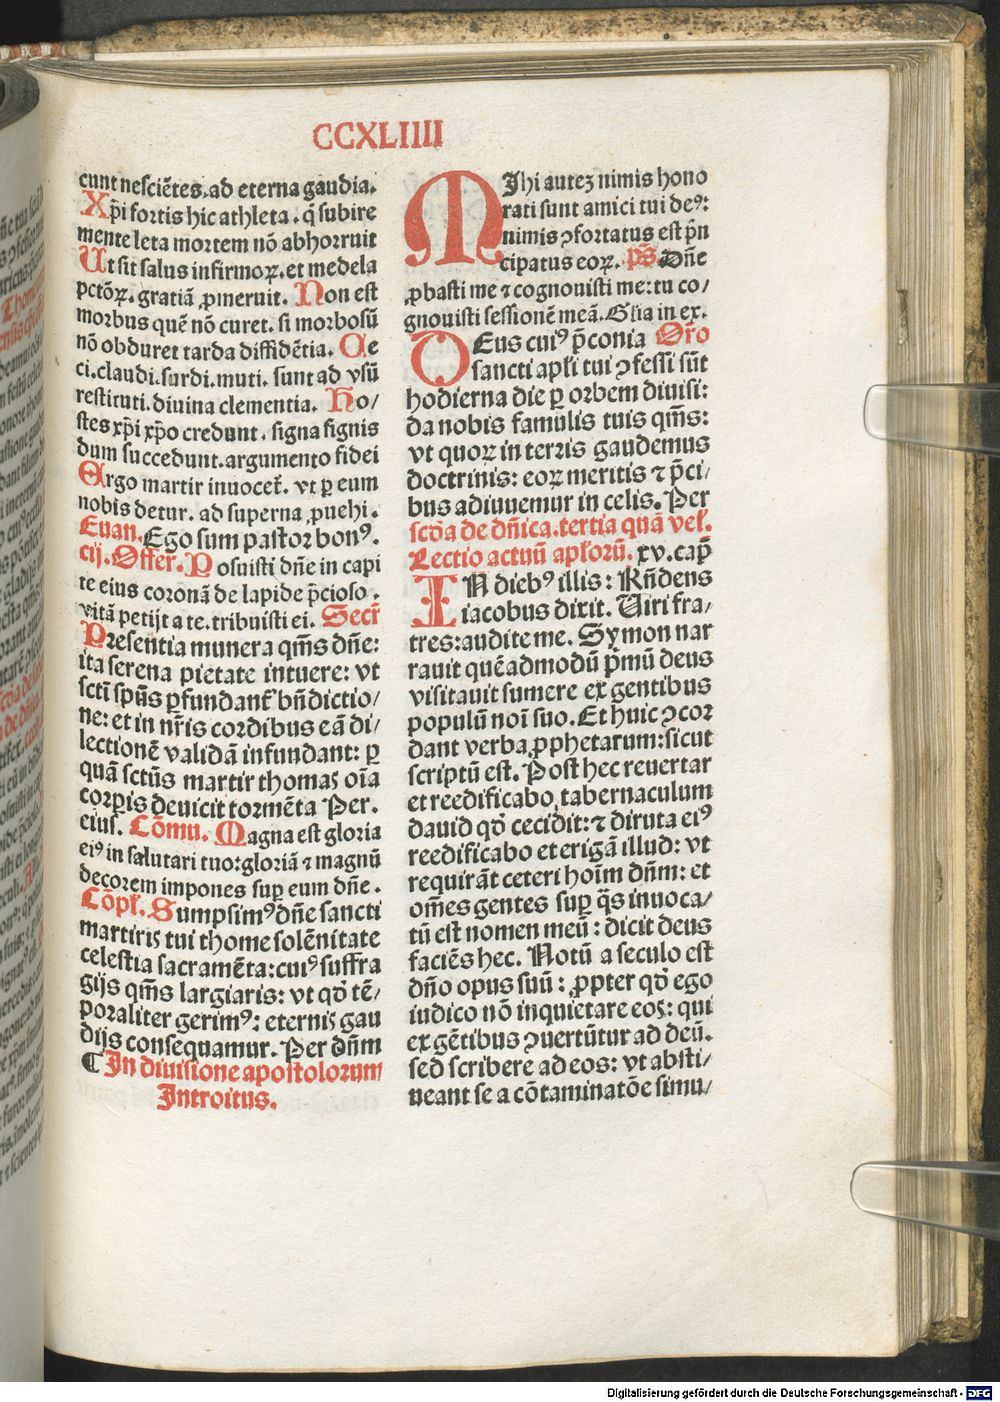 CCXLIIII
cunt nesciẽtes. ad eterna gaudia.
Xp̃i fortis hic athleta. q̃ subire
mente leta mortem nõ abhorruit
Ut sit salus infirmoꝝ. et medela
pctõꝝ. gratiã ꝓmeruit. Non est
morbus quẽ nõ curet. si morbosũ
nõ obduret tarda diffidẽtia. Ce
ci. claudi. surdi. muti. sunt ad vsũ
restituti. diuina clementia. Ho/
stes xp̃i xp̃o credunt. signa signis
dum succedunt. argumento fidei
Ergo martir inuocet᷒. vt ꝑ eum
nobis detur. ad superna ꝓuehi.
Euan. Ego sum pastor bonꝰ.
cij. Offer. Posuisti dñe in capi
te eius coronã de lapide p̃cioso.
vitã petijt a te. tribuisti ei. Secr̃
Presentia munera qm̃s dñe:
ita serena pietate intuere: vt
scti sp̃us ꝑfundant᷒ bñdictio/
ne: et in nr̃is cordibus eã di/
lectionẽ validã infundant: ꝑ
quã sctũs martir thomas oĩa
corꝑis deuicit tormẽta Per.
eius. Cõmu. Magna est gloria
eiꝰ in salutari tuo: gloriã ⁊ magnũ
decorem impones suꝑ eum dñe.
Cõpl̃. Sumpsimꝰ dñe sancti
martiris tui thome solẽnitate
celestia sacramẽta: cuiꝰ suffra
gijs qm̃s largiaris: vt qð tẽ/
poraliter gerimꝰ: eternis gau
dijs consequamur. Per dñm
¶ In diuisione apostolorum
Introitus.
MIhi auteʒ nimis hono
rati sunt amici tui deꝰ:
nimis ꝯfortatus est p̃n
cipatus eoꝝ. ps̃ Dñe
ꝓbasti me ⁊ cognouisti me: tu co/
gnouisti sessionẽ meã. Glia in ex.
DEus cuiꝰ p̃conia Or̃o
sancti apl̃i tui ꝯfessi sũt
hodierna die ꝑ orbem diuisi:
da nobis famulis tuis qm̃s:
vt quoꝝ in terris gaudemus
doctrinis: eoꝝ meritis ⁊ p̃ci/
bus adiuuemur in celis. Per
scða de dñica. tertia quã vel̃.
Lectio actuũ apl̃orũ. xv. cap̃
IN diebꝰ illis: Rñdens
iacobus dixit. Uiri fra/
tres: audite me. Symon nar
rauit quẽadmodũ p̃mũ deus
visitauit sumere ex gentibus
populũ noĩ suo. Et huic ꝯcor
dant verba ꝓphetarum: sicut
scriptũ est. Post hec reuertar
et reedificabo tabernaculum
dauid qð cecidit: ⁊ diruta eiꝰ
reedificabo et erigã illud: vt
requirãt ceteri hoĩm dñm: et
om̃es gentes suꝑ q̃s inuoca/
tũ est nomen meũ: dicit deus
faciẽs hec. Notũ a seculo est
dño opus suũ: ꝓpter qð ego
iudico nõ inquietare eos: qui
ex gẽtibus ꝯuertũtur ad deũ.
sed scribere ad eos: vt absti/
neant se a cõtaminatõe simu/
Digitalisierung gefördert durch die Deutsche Forschungsgemeinschaft - DFG